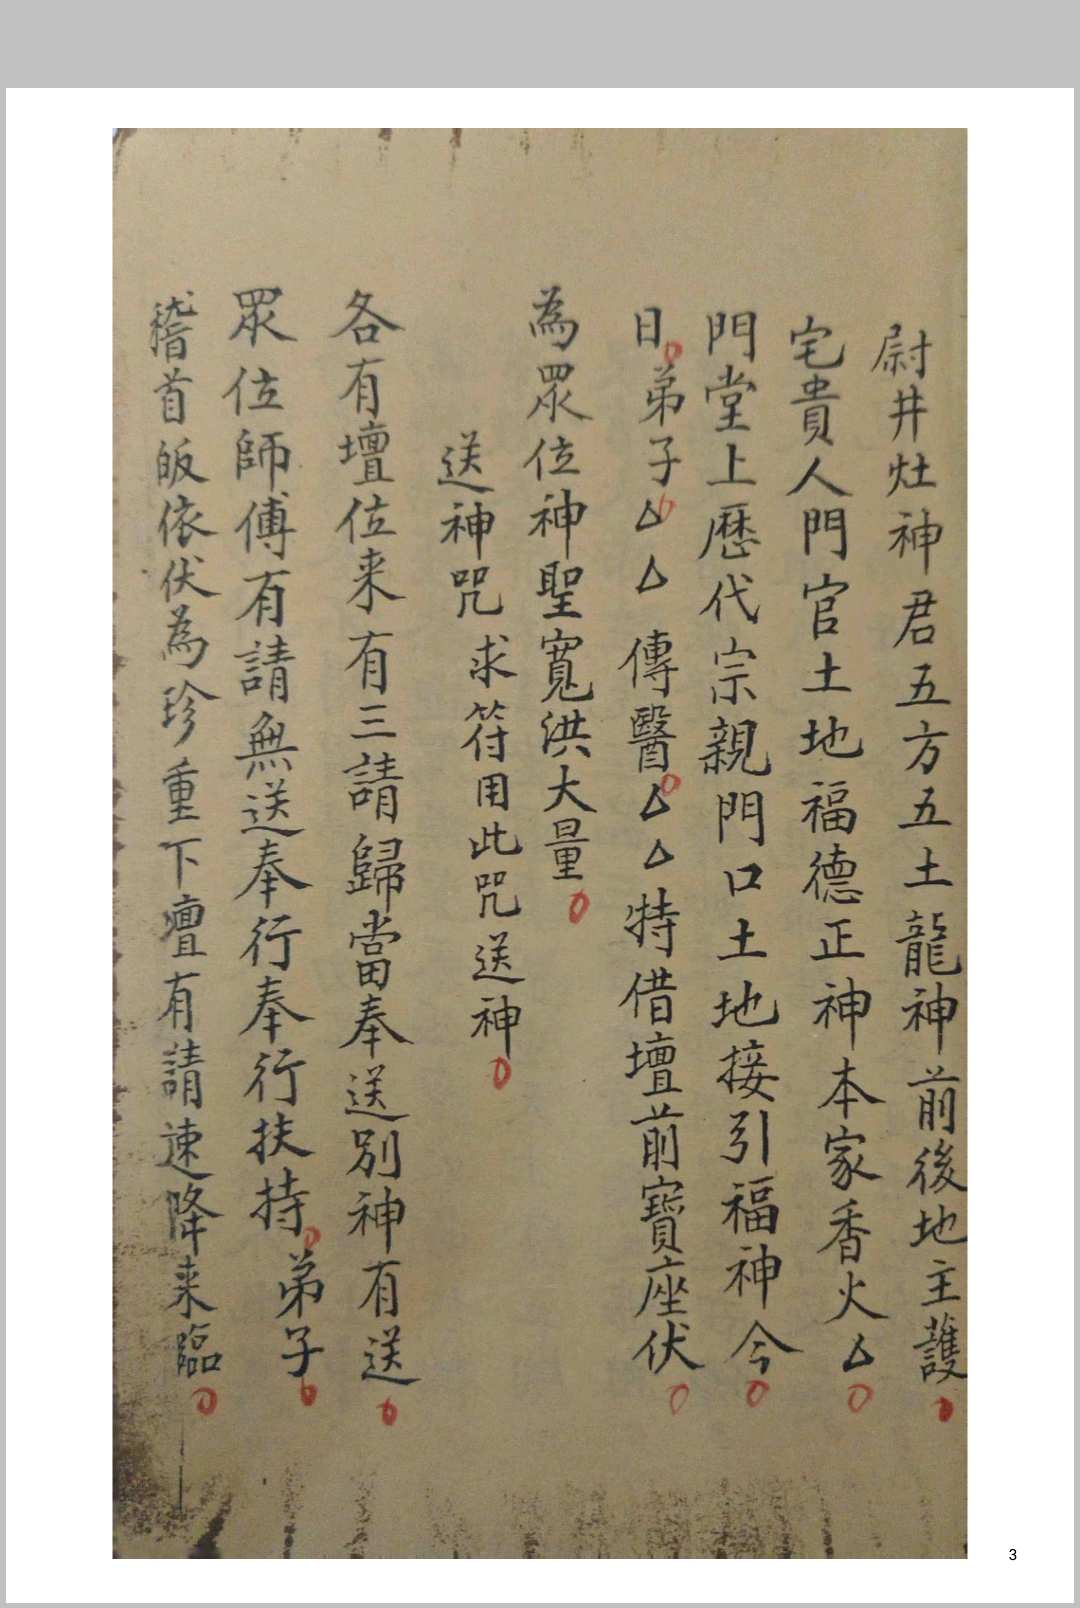 尉井灶神君五方五土龍神前後地主護
宅貴人門官土地福德正神本家香火△
門堂上歷代宗親門口土地接引福神今
日弟子△△傳醫△△特借壇前寶座伏
為眾位神聖寬洪大量
送神咒求符用此咒送神
各有壇位来有三請歸當奉送別神有送
眾位師傅有請無送奉行奉行扶持弟子
稽首皈依伏為珍重下壇有請速降来臨
3